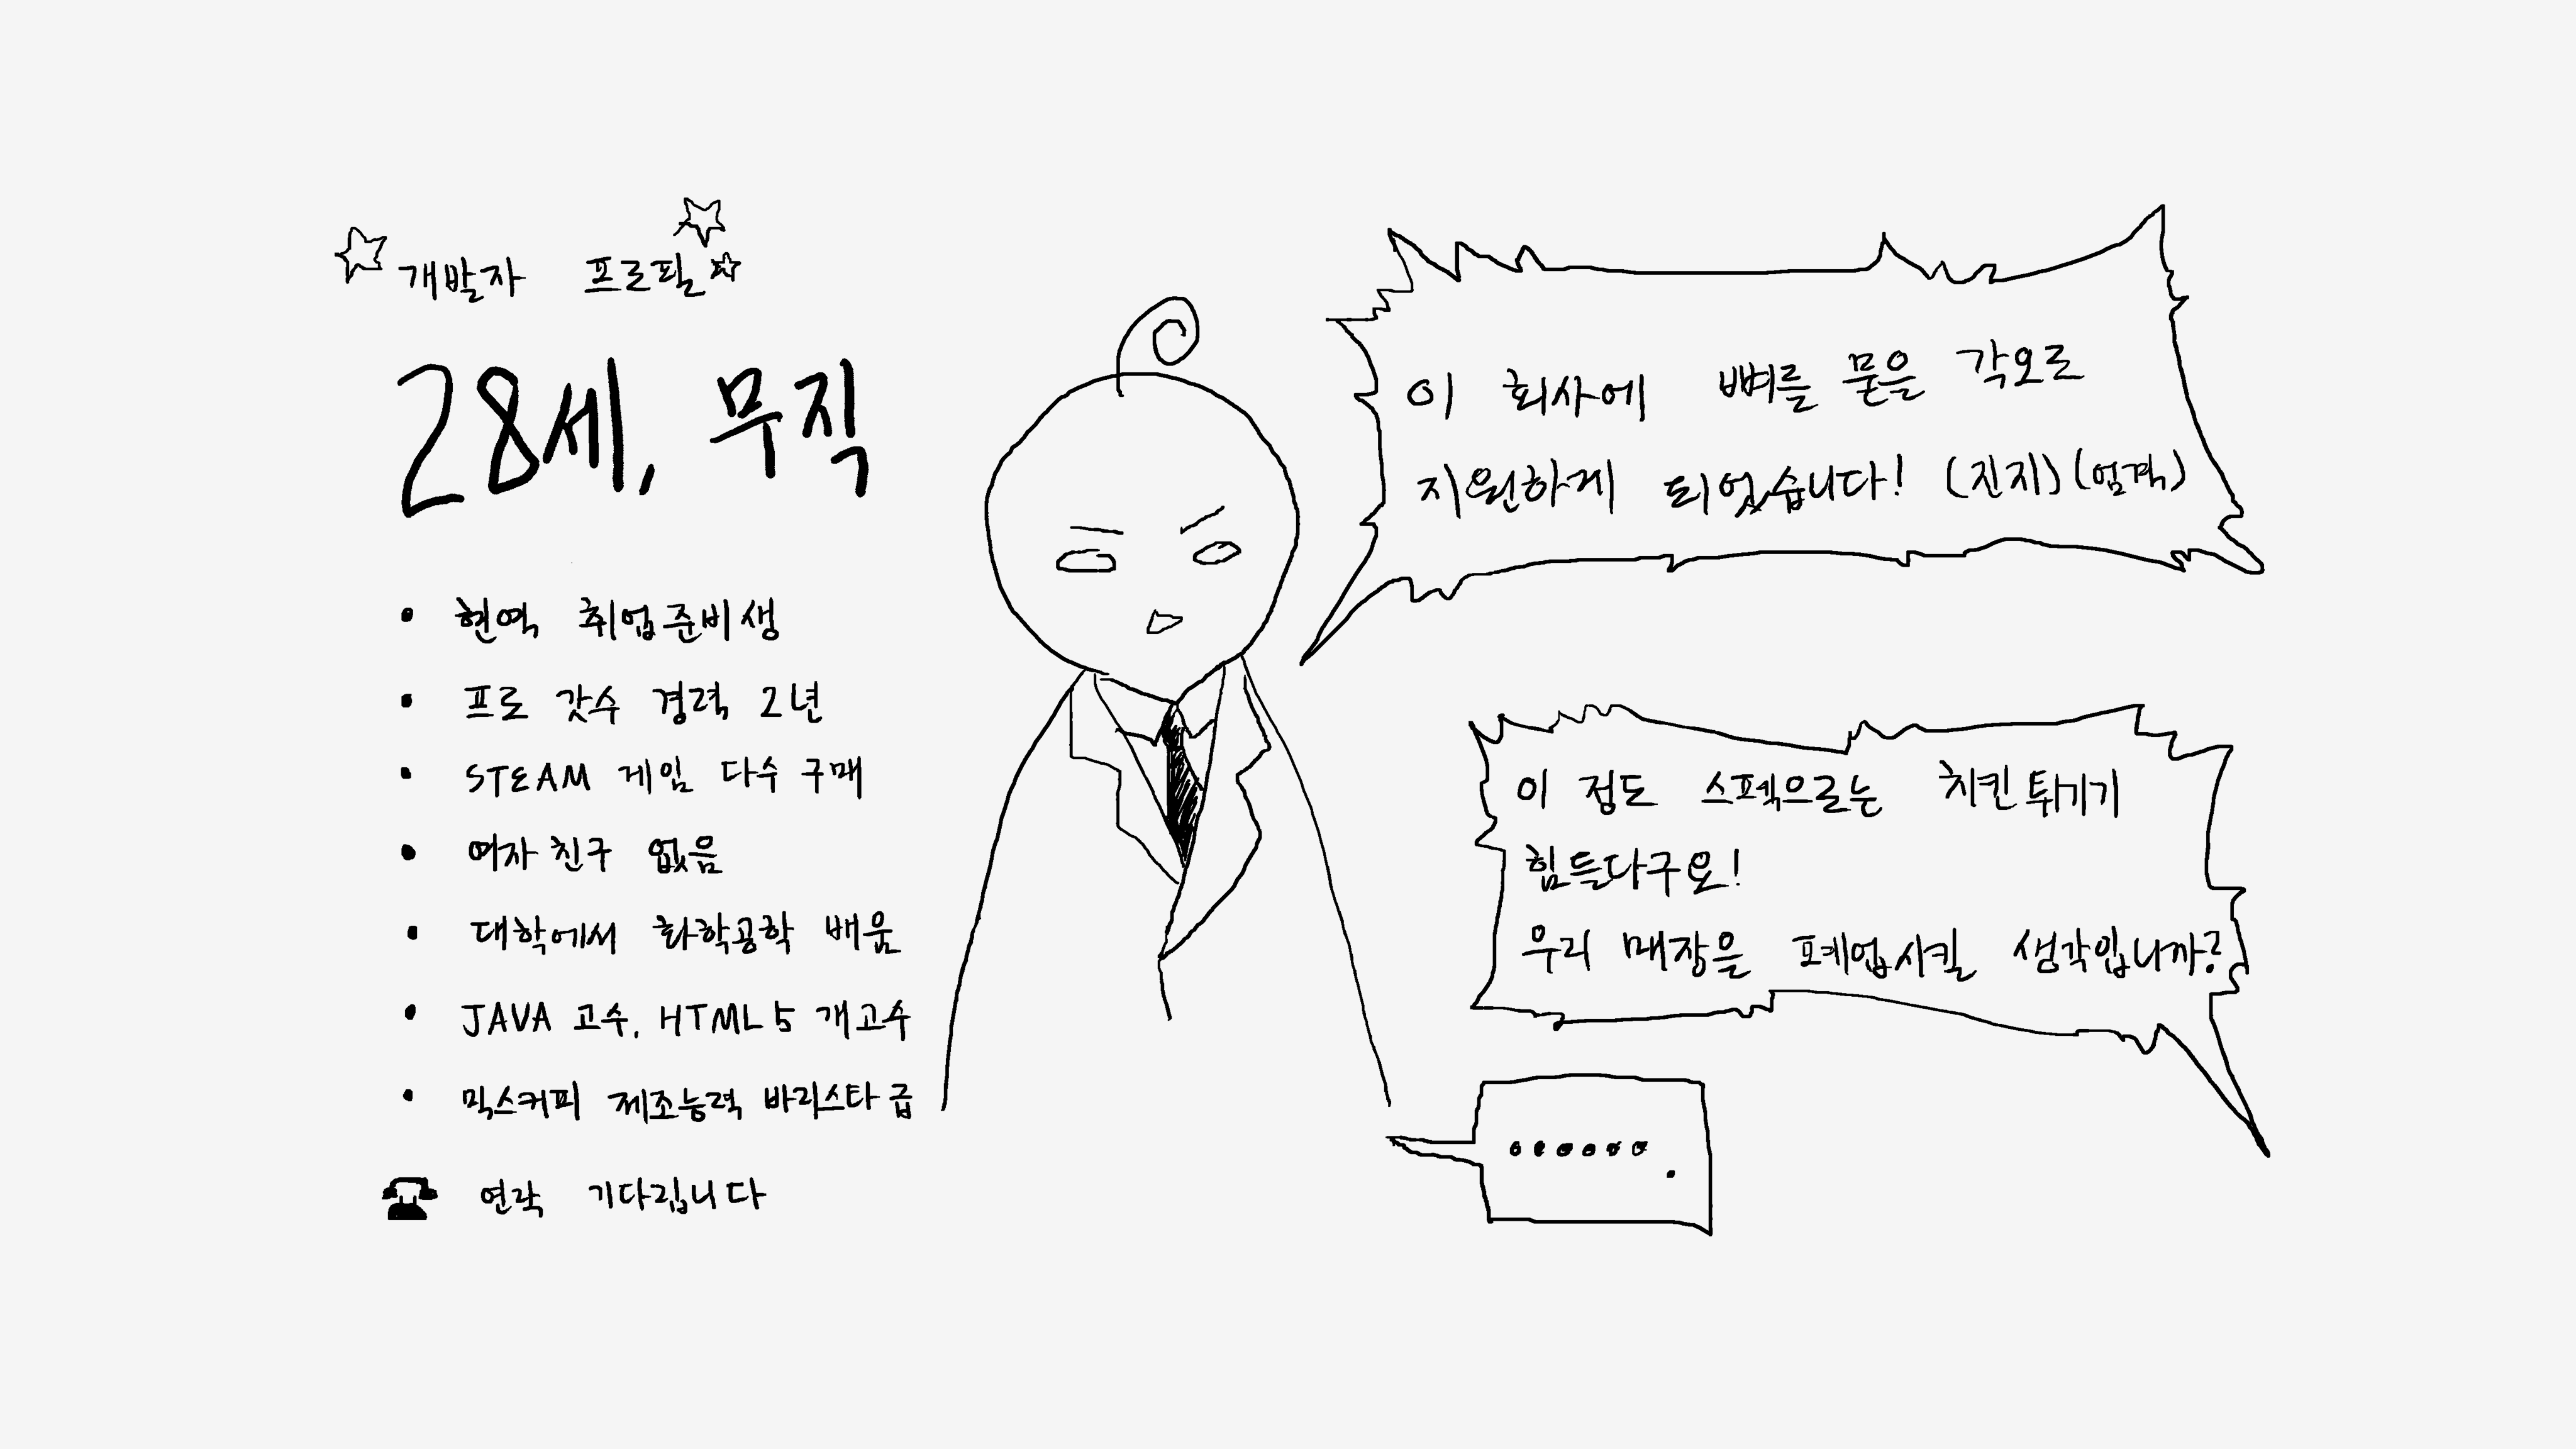 개발자 프로필
28세, 무직
• 현역 취업준비생
• 프로 갓수 경력 2년
• STEAM 게임 다수 구매
• 여자친구 없음
• 대학에서 화학공학 배움
• JAVA 고수, HTML5 개고수
• 믹스커피 제조능력 바리스타급
연락 기다립니다
이 회사에 뼈를 묻을 각오로
지원하게 되었습니다! (진지)(엄격)
이 정도 스펙으로는 치킨튀기기
힘들다구요!
우리 매장을 폐업시킬 생각입니까?
.......